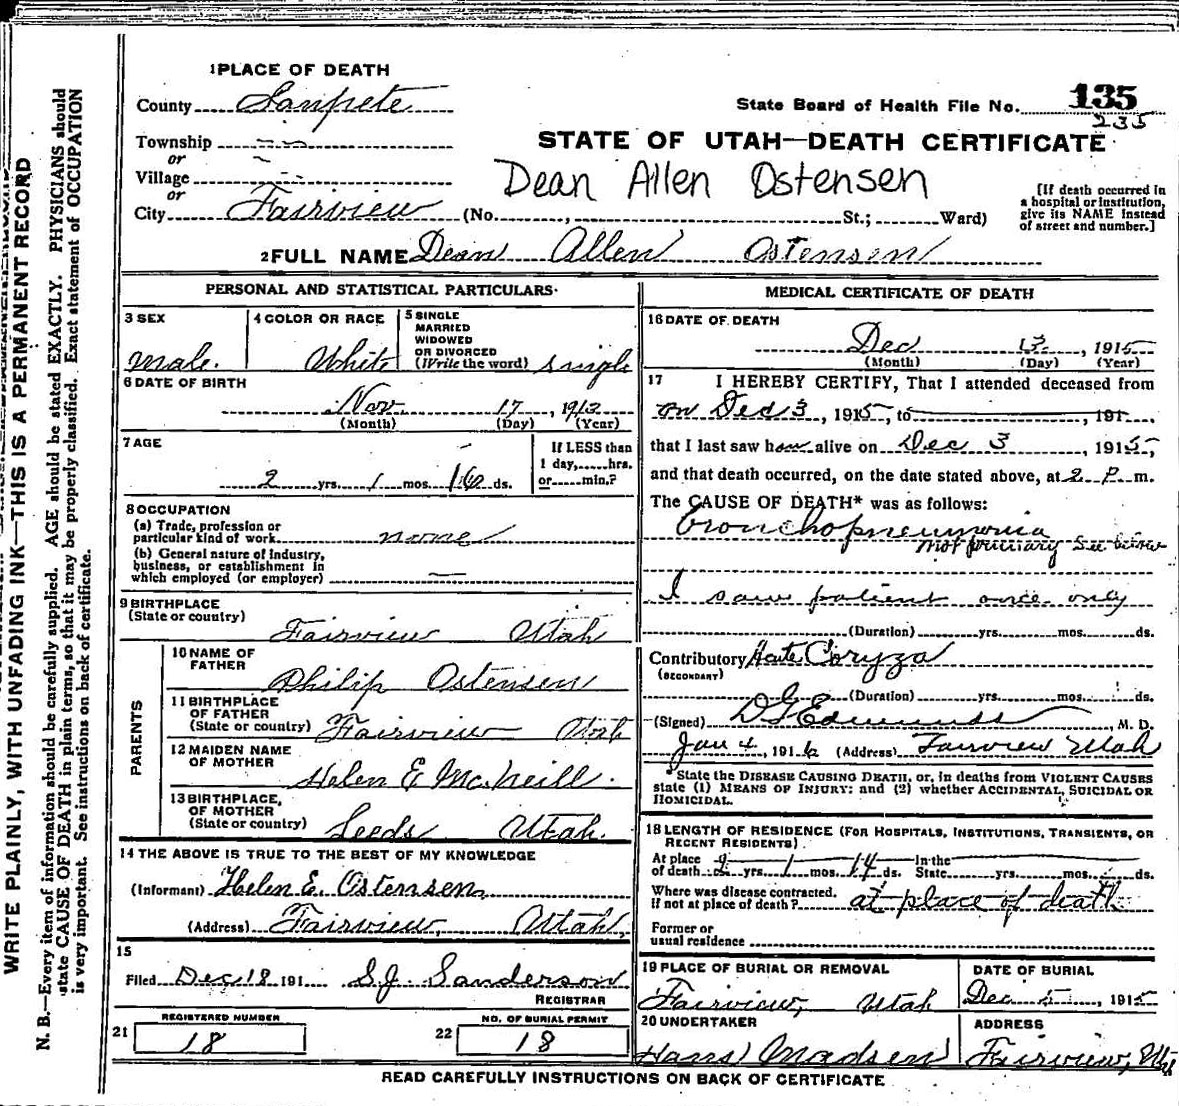 1 PLACE OF DEATH
County Sanpete
State Board of Health File No. 135
235
Township
or
STATE OF UTAH—DEATH CERTIFICATE
Village
or
Dean Allen Ostensen
City Fairview (No. , St.; Ward)
[If death occurred in
a hospital or institution,
give its NAME instead
of street and number.]
2 FULL NAME Dean Allen Ostensen
PERSONAL AND STATISTICAL PARTICULARS
3 SEX
male.
4 COLOR OR RACE
White
5 SINGLE
MARRIED
WIDOWED
OR DIVORCED
(Write the word) single
6 DATE OF BIRTH
Nov. 17, 1913
(Month) (Day) (Year)
7 AGE
2 yrs. 1 mos. 16 ds.
If LESS than
1 day, hrs.
or min.?
8 OCCUPATION
(a) Trade, profession or
particular kind of work none
(b) General nature of industry,
business, or establishment in
which employed (or employer) —
9 BIRTHPLACE
(State or country)
Fairview Utah
PARENTS
10 NAME OF
FATHER
Philip Ostensen
11 BIRTHPLACE
OF FATHER
(State or country) Fairview Utah
12 MAIDEN NAME
OF MOTHER
Helen E McNeill.
13 BIRTHPLACE,
OF MOTHER
(State or country) Leeds Utah.
14 THE ABOVE IS TRUE TO THE BEST OF MY KNOWLEDGE
(Informant) Helen E. Ostensen,
(Address) Fairview, Utah,
15
Filed Dec 18 191 S.J. Sanderson
REGISTRAR
21 REGISTERED NUMBER
18
22 NO. OF BURIAL PERMIT
18
MEDICAL CERTIFICATE OF DEATH
16 DATE OF DEATH
Dec 3, 1915
(Month) (Day) (Year)
17 I HEREBY CERTIFY, That I attended deceased from
on Dec 3, 1915, to 191
that I last saw him alive on Dec 3, 1915,
and that death occurred, on the date stated above, at 2 P. m.
The CAUSE OF DEATH* was as follows:
bronchopneumonia
not primary See below
I saw patient once only
(Duration) yrs. mos. ds.
Contributory Acute Coryza
(SECONDARY)
(Duration) yrs. mos. ds.
(Signed) D G Edmunds, M. D.
Jan 4, 1916 (Address) Fairview Utah
*State the DISEASE CAUSING DEATH, or, in deaths from VIOLENT CAUSES
state (1) MEANS OF INJURY; and (2) whether ACCIDENTAL, SUICIDAL OR
HOMICIDAL.
18 LENGTH OF RESIDENCE (FOR HOSPITALS, INSTITUTIONS, TRANSIENTS, OR
RECENT RESIDENTS).
At place
of death 2 yrs. 1 mos. 14 ds. In the State yrs. mos. ds.
Where was disease contracted,
if not at place of death? at place of death
Former or
usual residence
19 PLACE OF BURIAL OR REMOVAL
Fairview, Utah
DATE OF BURIAL
Dec 5, 1915
20 UNDERTAKER
Hans Madsen
ADDRESS
Fairview, Ut
READ CAREFULLY INSTRUCTIONS ON BACK OF CERTIFICATE
WRITE PLAINLY, WITH UNFADING INK—THIS IS A PERMANENT RECORD
N. B.—Every item of information should be carefully supplied. AGE should be stated EXACTLY. PHYSICIANS should
state CAUSE OF DEATH in plain terms, so that it may be properly classified. Exact statement of OCCUPATION
is very important. See instructions on back of certificate.